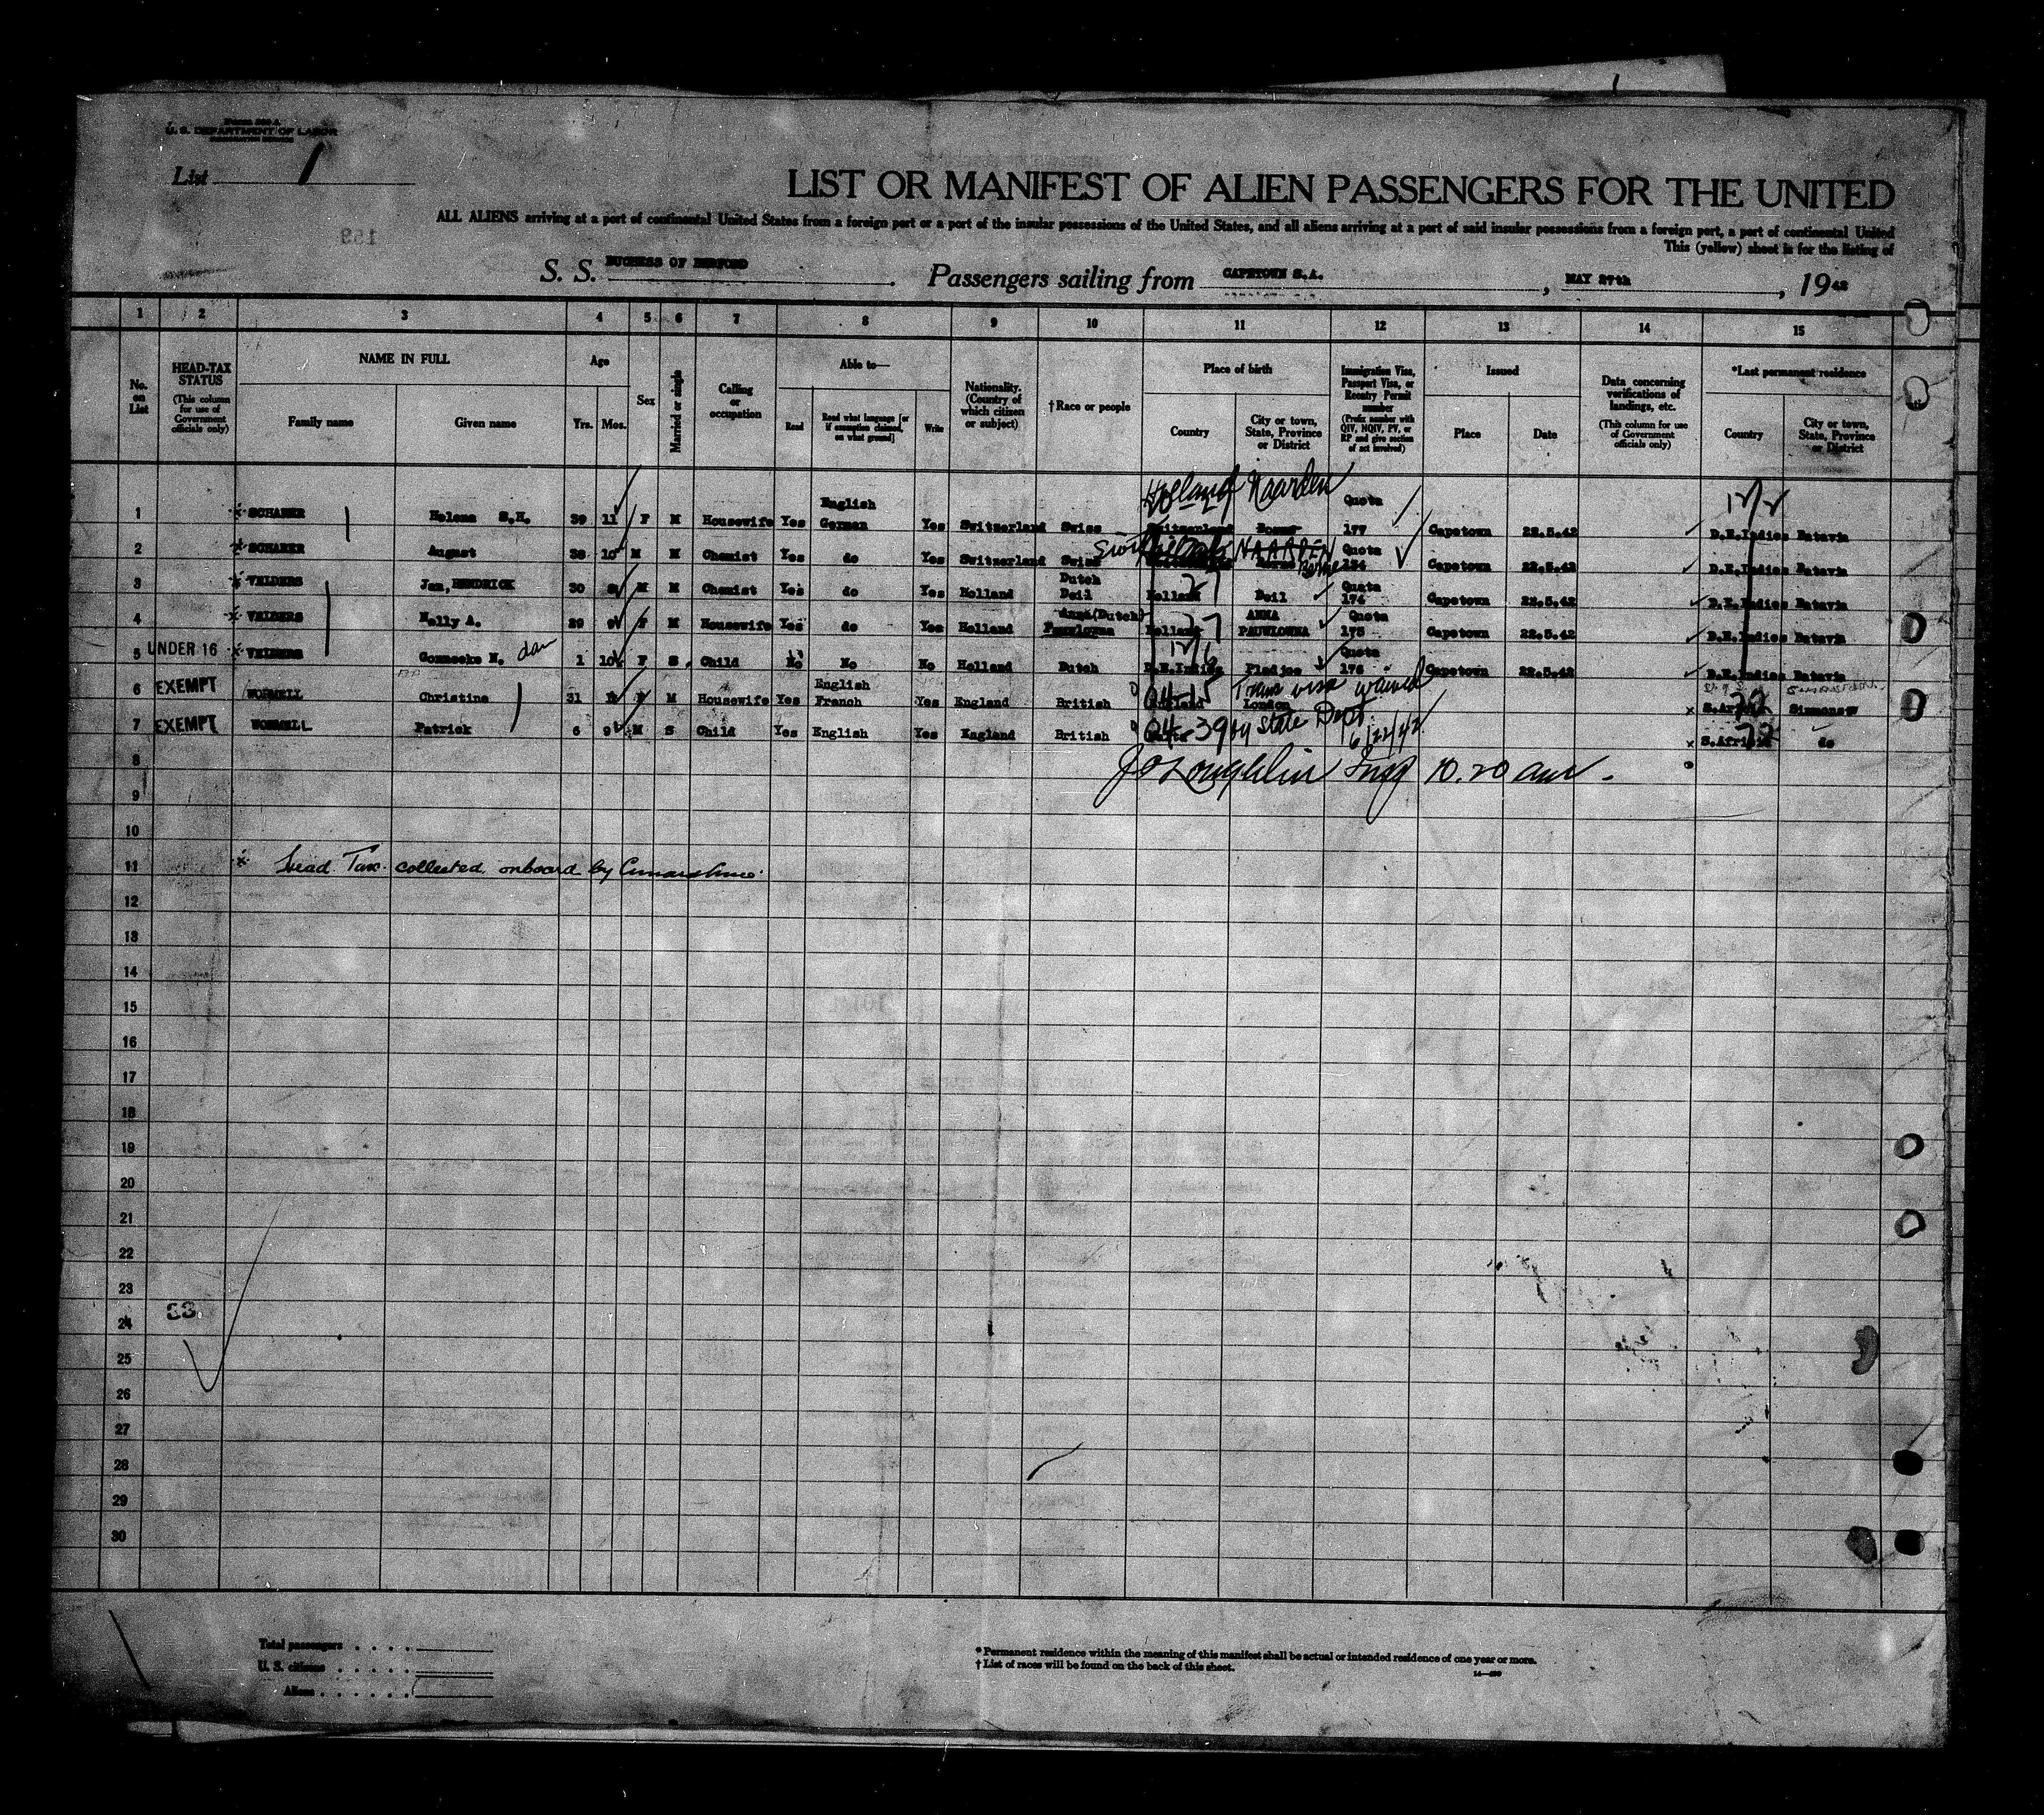 U. S. DEPARTMENT OF LABOR
List 1
LIST OR MANIFEST OF ALIEN PASSENGERS FOR THE UNITED
ALL ALIENS arriving at a port of continental United States from a foreign port or a port of the insular possessions of the United States, and all aliens arriving at a port of said insular possessions from a foreign port, a port of continental United
This (yellow) sheet is for the listing of
159
S. S. DUCHESS OF BEDFORD. Passengers sailing from CAPETOWN S.A., MAY 27th, 1942
1 2 3 4 5 6 7 8 9 10 11 12 13 14 15
No. on List
HEAD-TAX STATUS (This column for use of Government officials only)
NAME IN FULL
Family name Given name
Age
Yrs. Mos.
Sex
Married or single
Calling or occupation
Able to—
Read Read what language [or if exemption claimed, on what ground] Write
Nationality. (Country of which citizen or subject)
†Race or people
Place of birth
Country City or town, State, Province or District
Immigration Visa, Passport Visa, or Reentry Permit number (Prefix number with QIV, NQIV, PV, or RP and give section of act involved)
Issued
Place Date
Data concerning verifications of landings, etc. (This column for use of Government officials only)
*Last permanent residence
Country City or town, State, Province or District
Holland Naarden
1 SCHARER Helena S.H. 39 11 F M Housewife Yes English German Yes Switzerland Swiss Switzerland Quota 177 Capetown 22.5.42 D.E.Indies Batavia
2 SCHARER August 38 10 M M Chemist Yes do Yes Switzerland Swiss NAARDEN Berne Quota Capetown 22.5.42 D.E.Indies Batavia
3 VELDERS Jan, HENDRICK 30 M M Chemist Yes do Yes Holland Dutch Deil Holland Deil Quota 174 Capetown 22.5.42 D.E.Indies Batavia
4 VELDERS Nelly A. 29 9 F M Housewife Yes do Yes Holland Anna (Dutch) Pauwlowna Holland ANNA PAUWLOWNA Quota 175 Capetown 22.5.42 D.E.Indies Batavia
5 UNDER 16 VELDERS Gonneske N. dau 1 10 F S. Child No No No Holland Dutch D.E.Indies Pladjoe Quota 176 Capetown 22.5.42 D.E.Indies Batavia
6 EXEMPT WORMELL Christine 31 F M Housewife Yes English French Yes England British England London Trans visa waived S.Africa
7 EXEMPT WORMELL Patrick 6 9 M S Child Yes English Yes England British 39 by State Dept 6/22/42 S.Africa do
8
J O'Loughlin Insp 10.20 am.
9
10
11 Head Tax collected onboard by Cunard Line.
12
13
14
15
16
17
18
19
20
21
22
23
24
25
26
27
28
29
30
Total passengers . . . .
U. S. citizens . . . . .
Aliens . . . . . .
* Permanent residence within the meaning of this manifest shall be actual or intended residence of one year or more.
† List of races will be found on the back of this sheet.